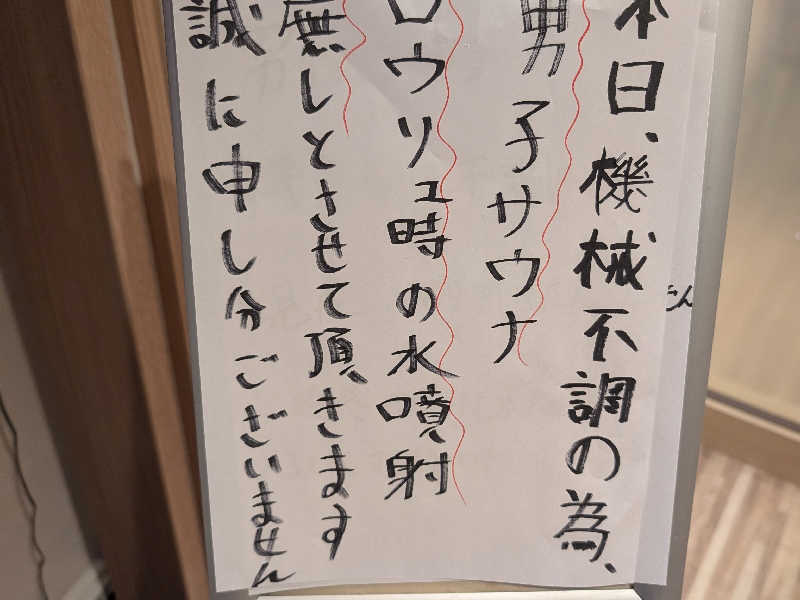 本日、機械不調の為、
男子サウナ
ロウリュ時の水噴射
無しとさせて頂きます
誠に申し分ございません